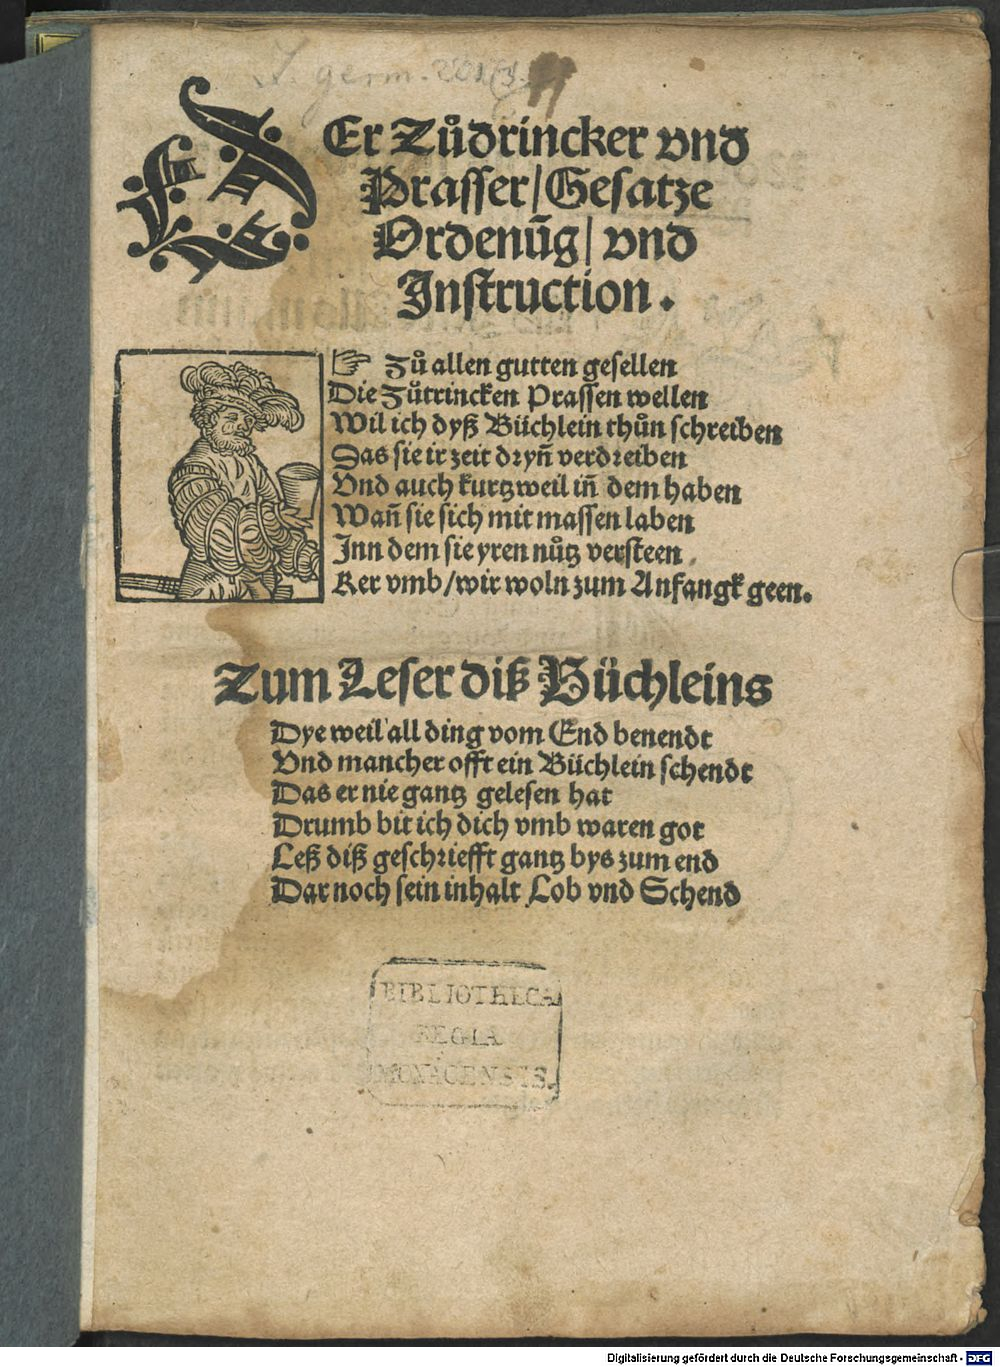 J. germ.
DEr Zuͦdrincker vnd
Prasser/Gesatze
Ordenũg/ vnd
Instruction.
☞ Zuͦ allen gutten gesellen
Die Zuͦtrincken Prassen wellen
Wil ich dyß Büchlein thuͦn schreiben
Das sie ir zeit dryn̄ verdreiben
Vnd auch kurtzweil in̄ dem haben
Wan̄ sie sich mit massen laben
Inn dem sie yren nuͦtz versteen
Ker vmb/wir woln zum Anfangk geen.
Zum Leser diß Büchleins
Dye weil all ding vom End benendt
Vnd mancher offt ein Büchlein schendt
Das er nie gantz gelesen hat
Drumb bit ich dich vmb waren got
Leß diß geschriefft gantz bys zum end
Dar noch sein inhalt Lob vnd Schend
BIBLIOTHECA
REGIA
MONACENSIS.
Digitalisierung gefördert durch die Deutsche Forschungsgemeinschaft - DFG